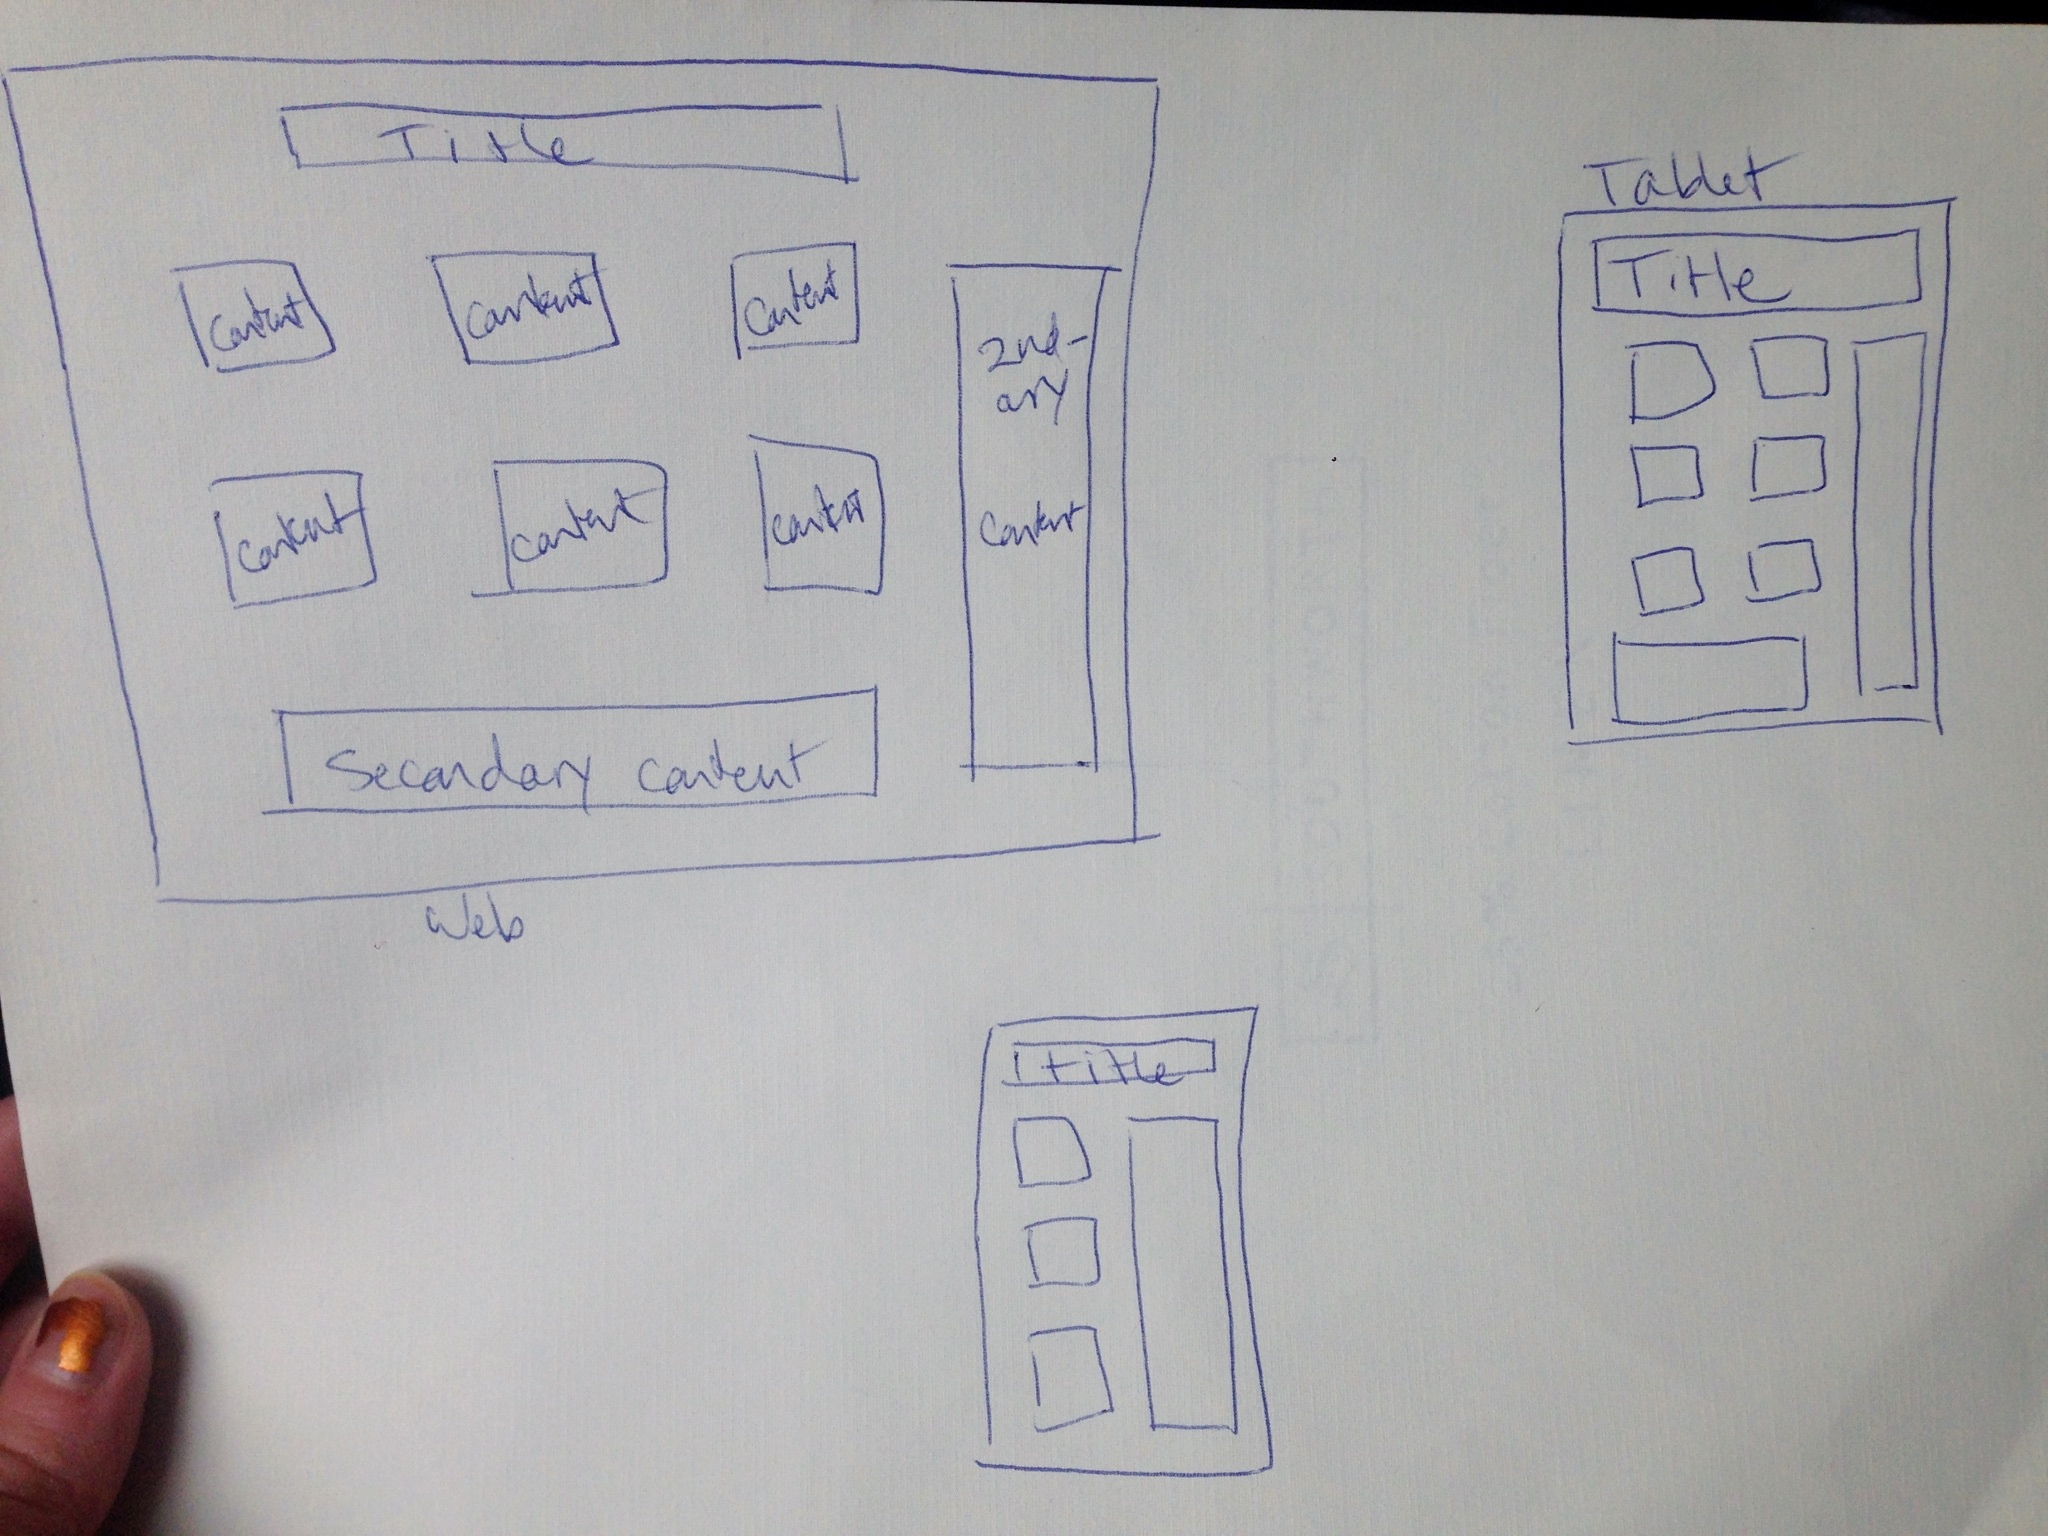 Title
Content
Content
Content
2nd-
ary
Content
Content
Content
Content
Secondary content
Web
Tablet
Title
title